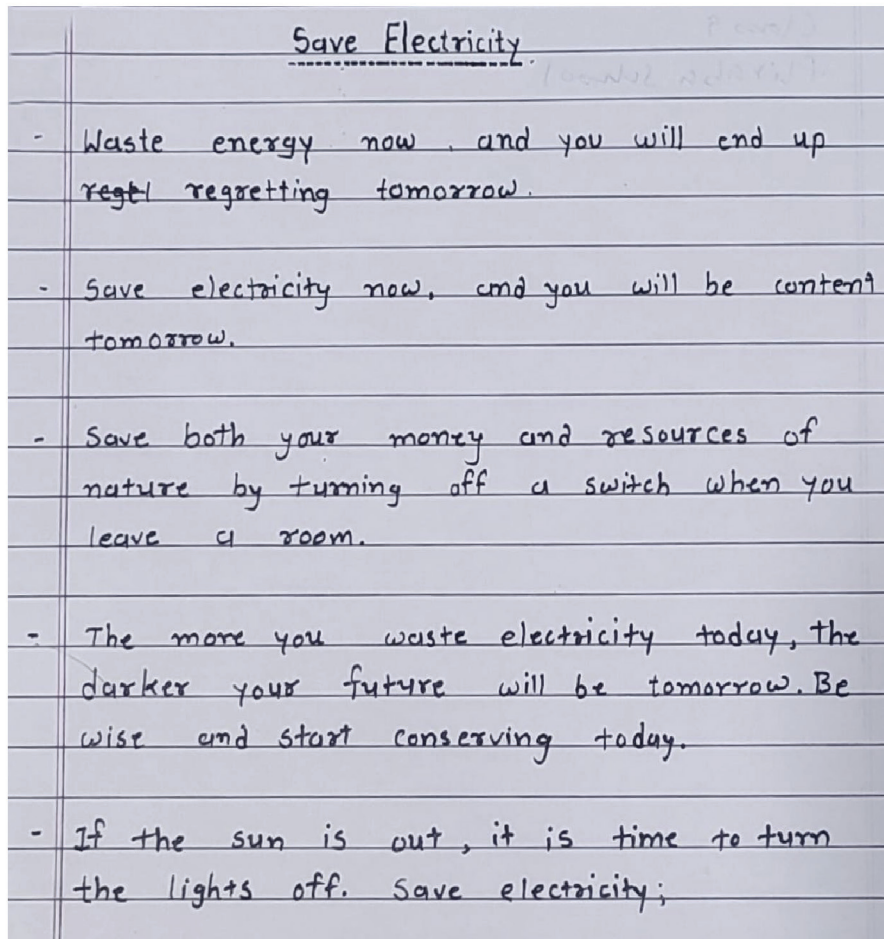 Save Electricity.
- Waste energy now, and you will end up
regretting tomorrow.
- Save electricity now, and you will be content
tomorrow.
- Save both your money and resources of
nature by turning off a switch when you
leave a room.
- The more you waste electricity today, the
darker your future will be tomorrow. Be
wise and start conserving today.
- If the sun is out, it is time to turn
the lights off. Save electricity;